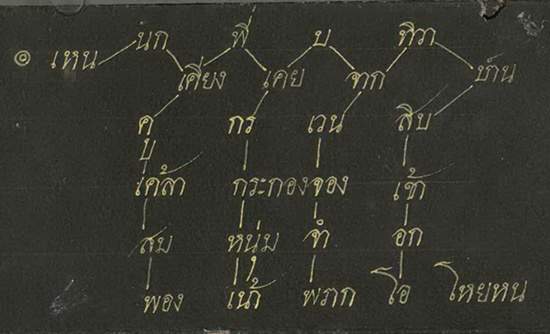 ๏ เหน นก พี่ บ ทิวา
เคียง เคย ทุก ข้าน
คุ กร เวน สิบ
บ
เคล้า กระกอง จอง เช้า
สม หนุ่ม จำ อก
พอง เน้า พราก โอ โหยหน